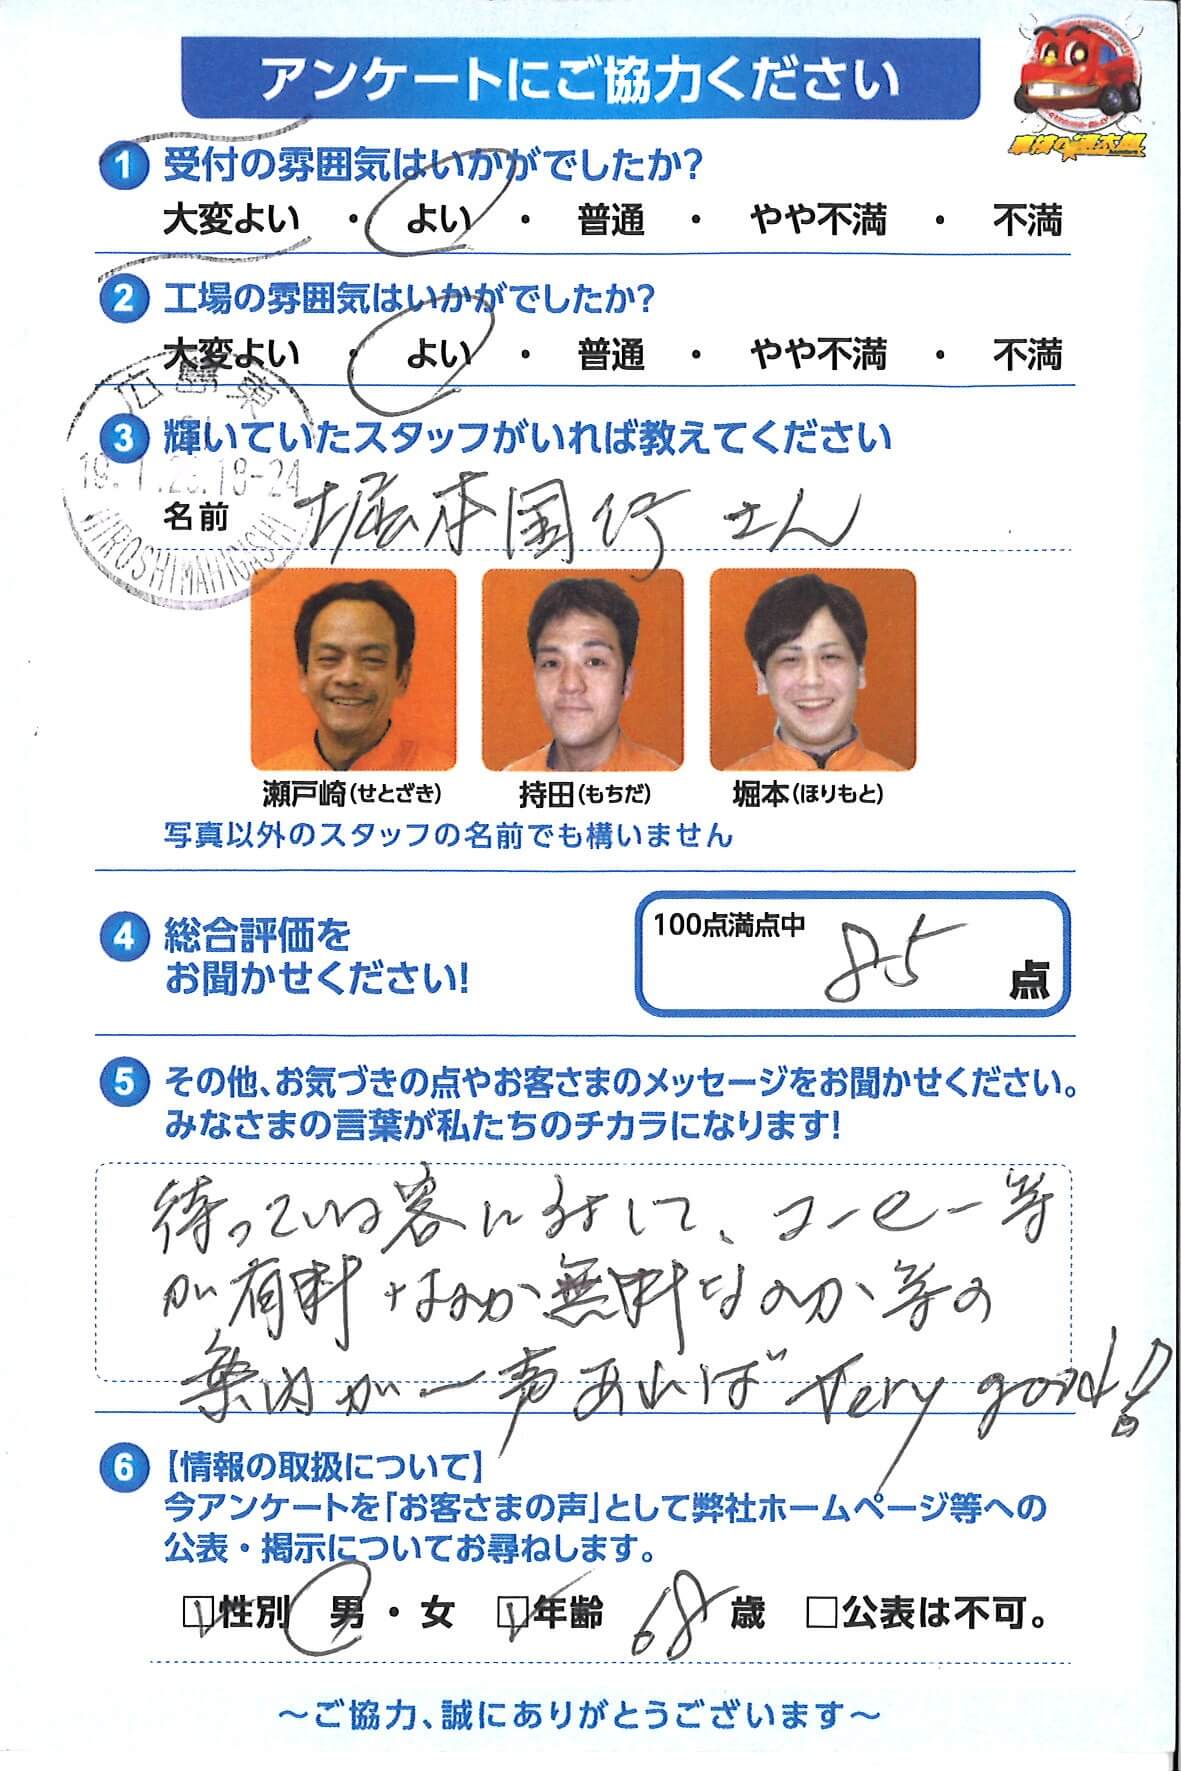 アンケートにご協力ください
1 受付の雰囲気はいかがでしたか?
大変よい ・ よい ・ 普通 ・ やや不満 ・ 不満
2 工場の雰囲気はいかがでしたか?
大変よい ・ よい ・ 普通 ・ やや不満 ・ 不満
広島東
3 輝いていたスタッフがいれば教えてください
19.1.23.18-24
名前 堀本国行さん
HIROSHIMAHIGASHI
瀬戸崎(せとざき) 持田(もちだ) 堀本(ほりもと)
写真以外のスタッフの名前でも構いません
4 総合評価を
お聞かせください!
100点満点中 85 点
5 その他、お気づきの点やお客さまのメッセージをお聞かせください。
みなさまの言葉が私たちのチカラになります!
待っている客に対して、コーヒー等
が有料なのか無料なのか等の
案内が一声あれば Very good!!
6 【情報の取扱について】
今アンケートを「お客さまの声」として弊社ホームページ等への
公表・掲示についてお尋ねします。
☑性別 男・女 ☑年齢 68 歳 □公表は不可。
～ご協力、誠にありがとうございます～